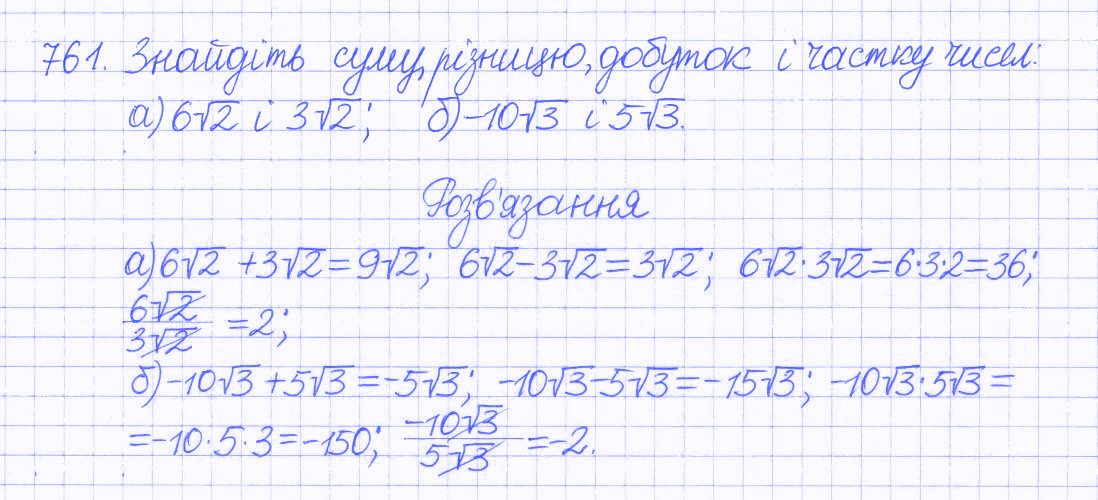 761. Знайдіть суму, різницю, добуток і частку чисел:
а) 6√2 і 3√2; б) -10√3 і 5√3.
Розв'язання
а) 6√2 + 3√2 = 9√2; 6√2 - 3√2 = 3√2; 6√2 · 3√2 = 6·3·2 = 36;
6√2/3√2 = 2;
б) -10√3 + 5√3 = -5√3; -10√3 - 5√3 = -15√3; -10√3 · 5√3 =
= -10·5·3 = -150; -10√3/5√3 = -2.